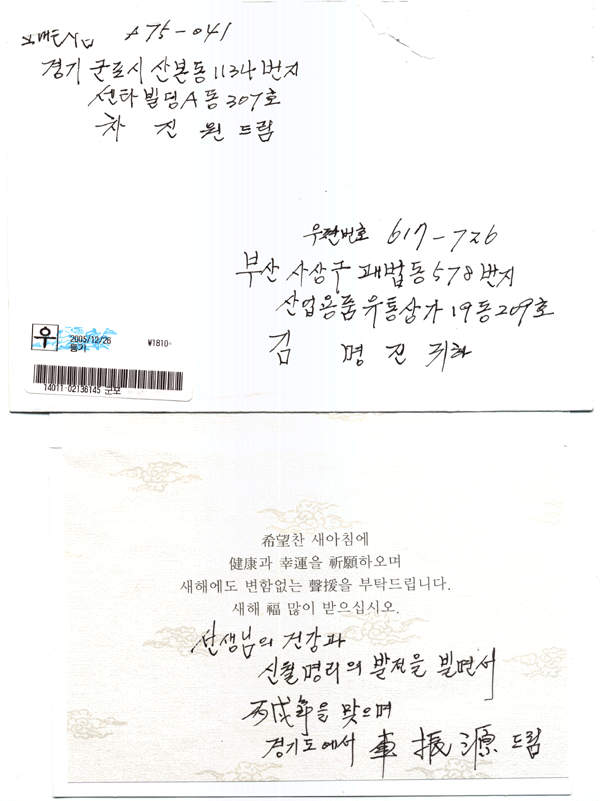 보내는사람 435-041
경기 군포시 산본동 1134번지
센타빌딩 A동 307호
차 진 원 드림
우편번호 617-726
부산 사상구 괘법동 578번지
산업용품유통상가 19동 209호
김 명 진 귀하
우
2005/12/26
등기
₩1810
14011-02136145 군포
希望찬 새아침에
健康과 幸運을 祈願하오며
새해에도 변함없는 聲援을 부탁드립니다.
새해 福 많이 받으십시오.
선생님의 건강과
신월명리의 발전을 빌면서
丙戌年을 맞으며
경기도에서 車 振 源 드림